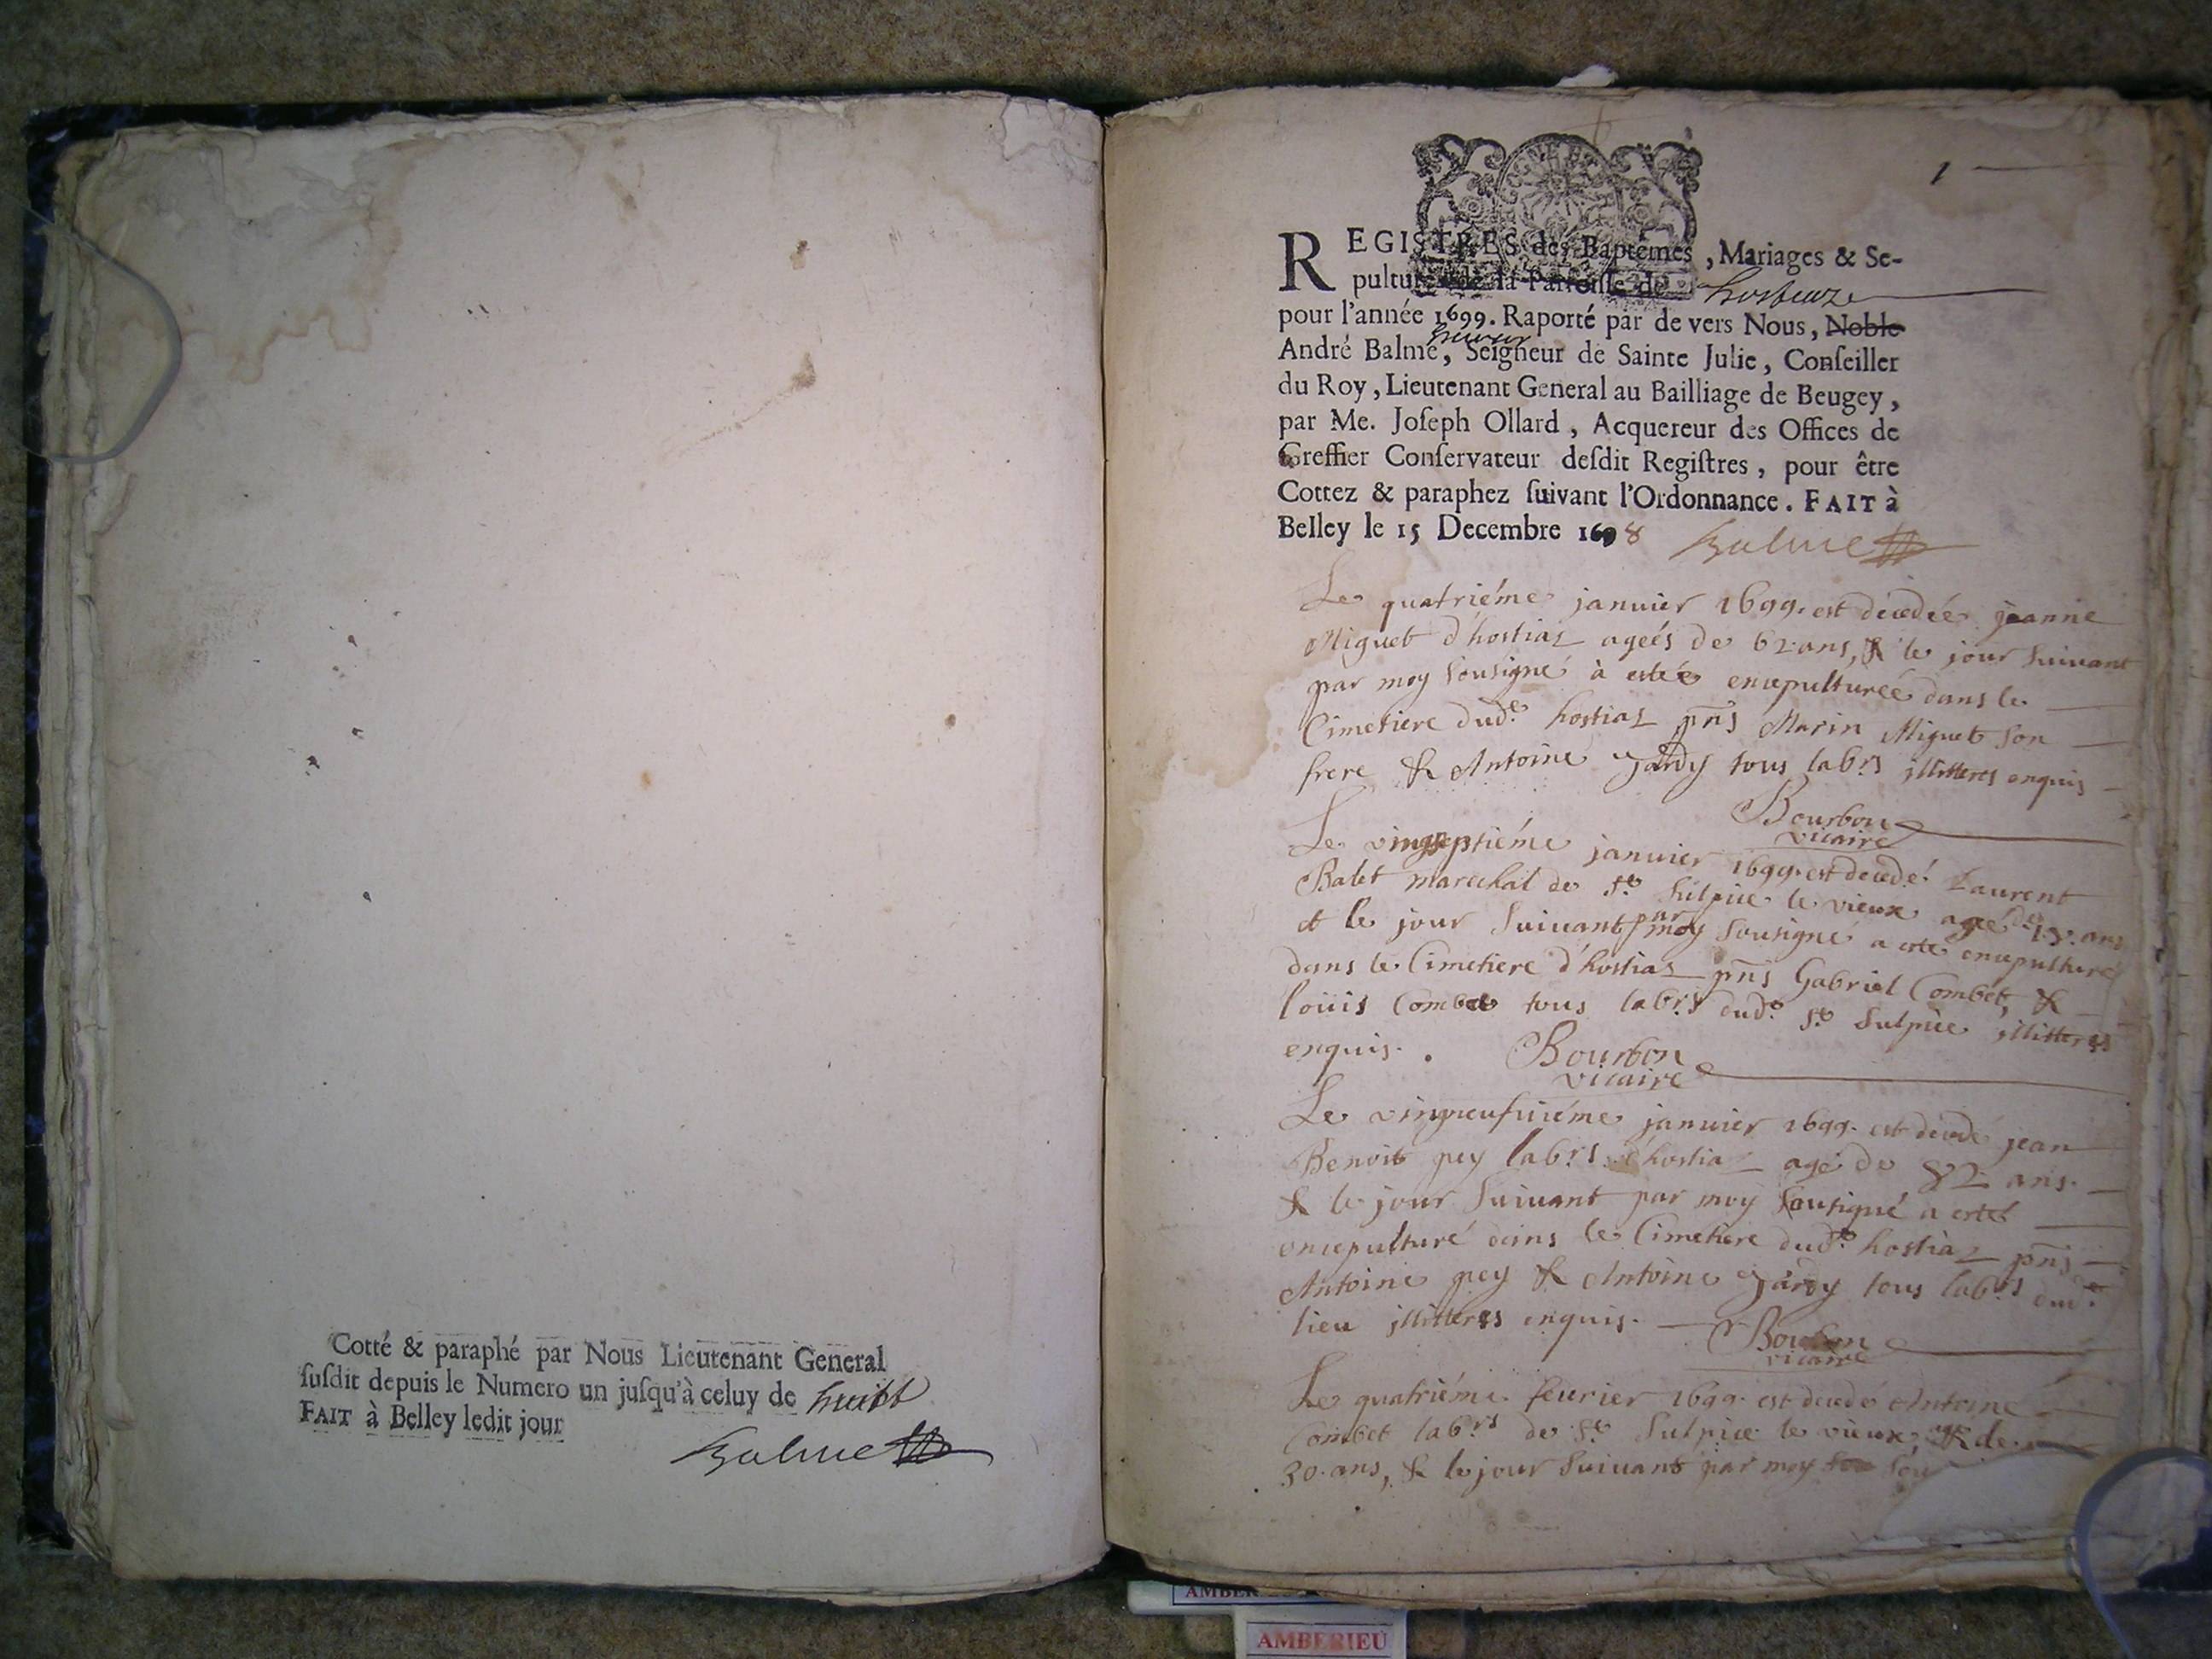 Cotté & paraphé par Nous Lieutenant General
ſuſdit depuis le Numero un juſqu'à celuy de huitt
FAIT à Belley ledit jour
Balme
1
REGISTRES des Baptêmes, Mariages & Se-
pultures de la Parroiſſe de
pour l'année 1699. Raporté par de vers Nous, Noble
André Balme, Seigneur de Sainte Julie, Conſeiller
du Roy, Lieutenant General au Bailliage de Beugey,
par Me. Joſeph Ollard, Acquereur des Offices de
Greffier Conſervateur deſdit Regiſtres, pour être
Cottez & paraphez ſuivant l'Ordonnance. FAIT à
Belley le 15 Decembre 1698 Balme
Le quatriéme januier 1699. est decedée jeanne
Miguet d'hostiaz ageés de 62 ans, & le jour suiuant
par moy sousigné à estée ensepulturée dans le
Cimetiere dude. hostiaz pñs Marin Miguet son
frere & Antoine Jardy tous labrs illitteres enquis
Bourbon
vicaire
Le vingseptiéme januier 1699. est decedé Laurent
Balet marechal de St. Sulpice le vieux agé de ans
et le jour suiuant par moy sousigné a esté ensepulturé
dans le Cimetiere d'hostiaz pñs Gabriel Combet, &
loüis Combet tous labrs dude. St. Sulpice illitteres
enquis. Bourbon
vicaire
Le vingneufuiéme januier 1699. est decedé jean
Benoit pey labrs d'hostiaz agé de 82 ans.
& le jour suiuant par moy sousigné a esté
ensepulturé dans le Cimetiere dude. hostiaz pñs
Antoine pey & Antoine Jardy tous labrs dude.
lieu illitteres enquis. Bourbon
vicaire
Le quatriéme feurier 1699. est decedé Antoine
Combet labrs de St. Sulpice le vieux, de
30. ans, & le jour suiuant par moy
AMBERIEU